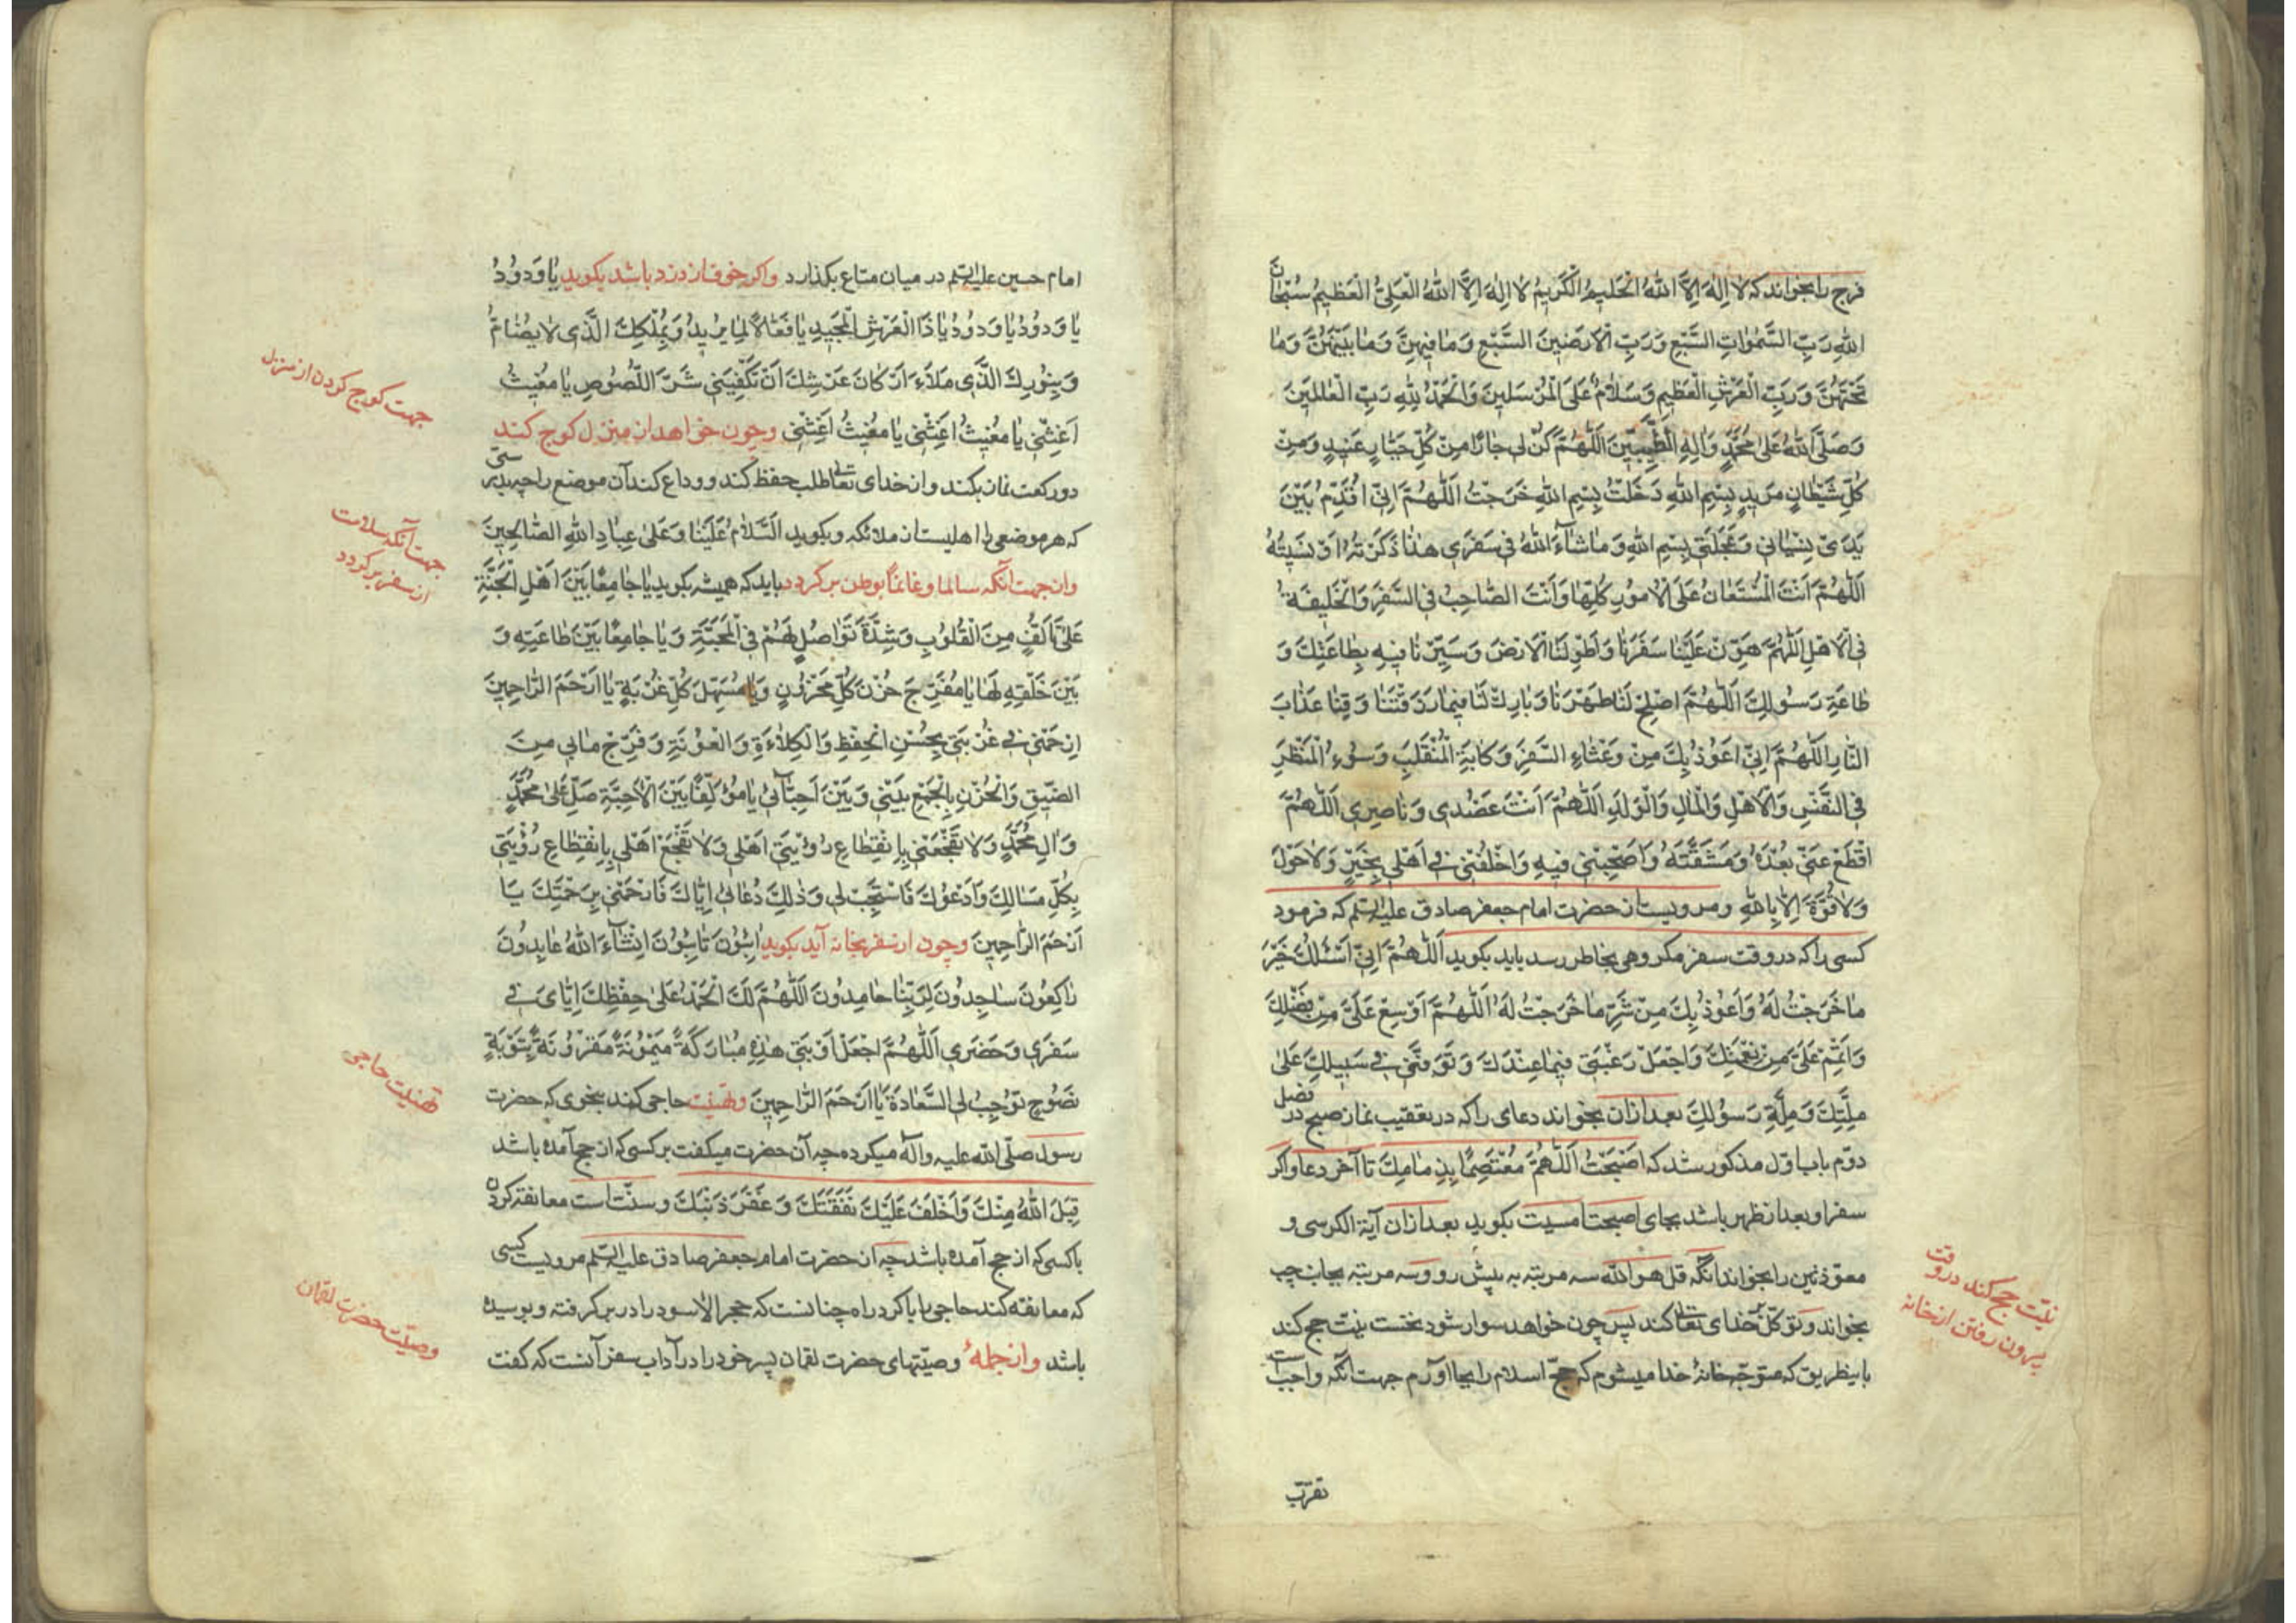 فرج را بخواند که لا اِلٰهَ اِلاَّ اللهُ الْحَلیمُ الْکَریمُ لا اِلٰهَ اِلاَّ اللهُ الْعَلِیُّ الْعَظیمُ سُبْحانَ
اللهِ رَبِّ السَّمٰواتِ السَّبْعِ وَرَبِّ الْاَرَضینَ السَّبْعِ وَمٰا فیهِنَّ وَمٰا بَیْنَهُنَّ وَمٰا
تَحْتَهُنَّ وَرَبِّ الْعَرْشِ الْعَظیمِ وَسَلامٌ عَلَی الْمُرْسَلینَ وَالْحَمْدُ لِلّٰهِ رَبِّ الْعٰالَمینَ
وَصَلَّی اللهُ عَلیٰ مُحَمَّدٍ وَاٰلِهِ الطَّیِّبینَ اَللّٰهُمَّ کُنْ لی جٰارًا مِنْ کُلِّ جَبّٰارٍ عَنیدٍ وَمِنْ
کُلِّ شَیْطٰانٍ مَریدٍ بِسْمِ اللهِ دَخَلْتُ بِسْمِ اللهِ خَرَجْتُ اَللّٰهُمَّ اِنّی اُقَدِّمُ بَیْنَ
یَدَیْ نِسْیٰانی وَعَجَلَتی بِسْمِ اللهِ وَمٰا شٰاءَ اللهُ فی سَفَری هٰذٰا ذَکَرْتُهُ اَوْ نَسیتُهُ
اَللّٰهُمَّ اَنْتَ الْمُسْتَعٰانُ عَلَی الْاُمُورِ کُلِّهٰا وَاَنْتَ الصّٰاحِبُ فی السَّفَرِ وَالْخَلیفَةُ
فی الْاَهْلِ اَللّٰهُمَّ هَوِّنْ عَلَیْنٰا سَفَرَنٰا وَاَطْوِ لَنَا الْاَرْضَ وَسَیِّرْنٰا فیهِ بِطٰاعَتِکَ وَ
طٰاعَةِ رَسُولِکَ اَللّٰهُمَّ اَصْلِحْ لَنٰا ظَهْرَنٰا وَبٰارِکْ لَنٰا فیمٰا رَزَقْتَنٰا وَقِنٰا عَذٰابَ
النّٰارِ اَللّٰهُمَّ اِنّی اَعُوذُ بِکَ مِنْ وَعْثٰاءِ السَّفَرِ وَکٰابَةِ الْمُنْقَلَبِ وَسُوءِ الْمَنْظَرِ
فی النَّفْسِ وَالْاَهْلِ وَالْمٰالِ وَالْوَلَدِ اَللّٰهُمَّ اَنْتَ عَضُدی وَنٰاصِری اَللّٰهُمَّ
اقْطَعْ عَنّی بُعْدَهُ وَمَشَقَّتَهُ وَاَصْحِبْنی فیهِ وَاخْلُفْنی فی اَهْلی بِخَیْرٍ وَلٰا حَوْلَ
وَلٰا قُوَّةَ اِلّٰا بِاللهِ ومرویست از حضرت امام جعفر صادق علیه السلم که فرمود
کسی را که در وقت سفر مکروهی بخاطر رسد باید بکوید اَللّٰهُمَّ اِنّی اَسْئَلُکَ خَیْرَ
مٰا خَرَجْتُ لَهُ وَاَعُوذُ بِکَ مِنْ شَرِّ مٰا خَرَجْتُ لَهُ اَللّٰهُمَّ اَوْسِعْ عَلَیَّ مِنْ فَضْلِکَ
وَاَتْمِمْ عَلَیَّ مِنْ نِعْمَتِکَ وَاجْعَلْ رَغْبَتی فیمٰا عِنْدَکَ وَتَوَفَّنی فی سَبیلِکَ عَلیٰ
مِلَّتِکَ وَمِلَّةِ رَسُولِکَ بعد ازان بخواند دعای را که در تعقیب نماز صبح در فصل
دوّم باب اوّل مذکور شد که اَصْبَحْتُ اَللّٰهُمَّ مُعْتَصِمًا بِذِمٰامِکَ تا آخر دعا واکر
سفر او بعد از ظهر باشد بجای اصبحت امسیت بکوید بعد ازان آیة الکرسی و
معوّذتین را بخواند انکه قل هو الله سه مرتبه به پیش رو وسه مرتبه بجانب چپ
بخواند وتوکّل بخدای تعالی کند پس چون خواهد سوار شود نخست نیّت حج کند
باینطریق که متوجّه خانهٔ خدا میشوم که حجّ اسلام را بجا اورم جهت انکه واجب است
تقرّب
نیّت حج کند در وقت
بیرون رفتن از خانه
امام حسین علیه السلم در میان متاع بکذارد واکر خوف از دزد باشد بکوید یٰا وَدُودُ
یٰا وَدُودُ یٰا وَدُودُ یٰا ذَا الْعَرْشِ الْمَجیدِ یٰا فَعّٰالًا لِمٰا یُریدُ وَبِمُلْکِکَ الَّذی لٰا یُضٰامُ
وَبِنُورِکَ الَّذی مَلَاَءَ اَرْکٰانَ عَرْشِکَ اَنْ تَکْفِیَنی شَرَّ اللُّصُوصِ یٰا مُغیثُ
اَغِثْنی یٰا مُغیثُ اَغِثْنی یٰا مُغیثُ اَغِثْنی وچون خواهد از منزل کوچ کند
دو رکعت نماز بکند واز خدای تعالی طلب حفظ کند و وداع کند آن موضع را چه بدرستی
که هر موضعی را اهلیست از ملائکه وبکوید اَلسَّلٰامُ عَلَیْنٰا وَعَلیٰ عِبٰادِ اللهِ الصّٰالِحینَ
واز جهت آنکه سالما وغانماً بوطن برکردد باید که همیشه بکوید یٰا جٰامِعًا بَیْنَ اَهْلِ الْجَنَّةِ
عَلیٰ تَاَلُّفٍ مِنَ الْقُلُوبِ وَشِدَّةِ تَوٰاصُلٍ لَهُمْ فی الْمَحَبَّةِ وَیٰا جٰامِعًا بَیْنَ طٰاعَتِهِ وَ
بَیْنَ خَلْقِهِ لَهٰا یٰا مُفَرِّجَ حُزْنَ کُلِّ مَحْزُونٍ وَیٰا مُسَهِّلَ کُلِّ غُرْبَةٍ یٰا اَرْحَمَ الرّٰاحِمینَ
اِرْحَمْنی فی غُرْبَتی بِحُسْنِ الْحِفْظِ وَالْکِلٰاءَةِ وَالْعَوْنَةِ وَفَرِّجْ مٰا بی مِنَ
الضّیقِ وَالْحُزْنِ بِالْجَمْعِ بَیْنی وَبَیْنَ اَحِبّٰائی یٰا مُؤَلِّفًا بَیْنَ الْاَحِبَّةِ صَلِّ عَلیٰ مُحَمَّدٍ
وَاٰلِ مُحَمَّدٍ وَلٰا تَفْجَعْنی بِانْقِطٰاعِ رُؤْیَتی اَهْلی وَلٰا تَفْجَعْ اَهْلی بِانْقِطٰاعِ رُؤْیَتی
بِکُلِّ مَسٰائِلِکَ اَدْعُوکَ فَاسْتَجِبْ لی وَذٰلِکَ دُعٰائی اِیّٰاکَ فَارْحَمْنی بِرَحْمَتِکَ یٰا
اَرْحَمَ الرّٰاحِمینَ وچون از سفر بخانه آید بکوید اٰئِبُونَ تٰائِبُونَ اِنْشٰاءَ اللهُ عٰابِدُونَ
رٰاکِعُونَ سٰاجِدُونَ لِرَبِّنٰا حٰامِدُونَ اَللّٰهُمَّ لَکَ الْحَمْدُ عَلیٰ حِفْظِکَ اِیّٰایَ فی
سَفَری وَحَضَری اَللّٰهُمَّ اجْعَلْ اَوْبَتی هٰذِهِ مُبٰارَکَةً مَیْمُونَةً مَقْرُونَةً بِتَوْبَةٍ
نَصُوحٍ تُوجِبُ لی السَّعٰادَةَ یٰا اَرْحَمَ الرّٰاحِمینَ وتهنیت حاجی کند بنحوی که حضرت
رسول صلّی الله علیه وآله میکرده چه آن حضرت میکفت بر کسی که از حج آمده باشد
قَبِلَ اللهُ مِنْکَ وَاَخْلَفَ عَلَیْکَ نَفَقَتَکَ وَغَفَرَ ذَنْبَکَ وسنّت است معانقه کردن
با کسی که از حج آمده باشد چه از حضرت امام جعفر صادق علیه السلم مرویست کسی
که معانقه کند حاجی را با کرد راه چنانست که حجر الاسود را در بر کرفته وبوسیده
باشد وازجملهٔ وصیّتهای حضرت لقمان پسر خود را در آداب سفر آنست که کفت
جهت کوچ کردن از منزل
جهت آنکه سلامت
از سفر برکردد
تهنیت حاجی
وصیّت حضرت لقمان